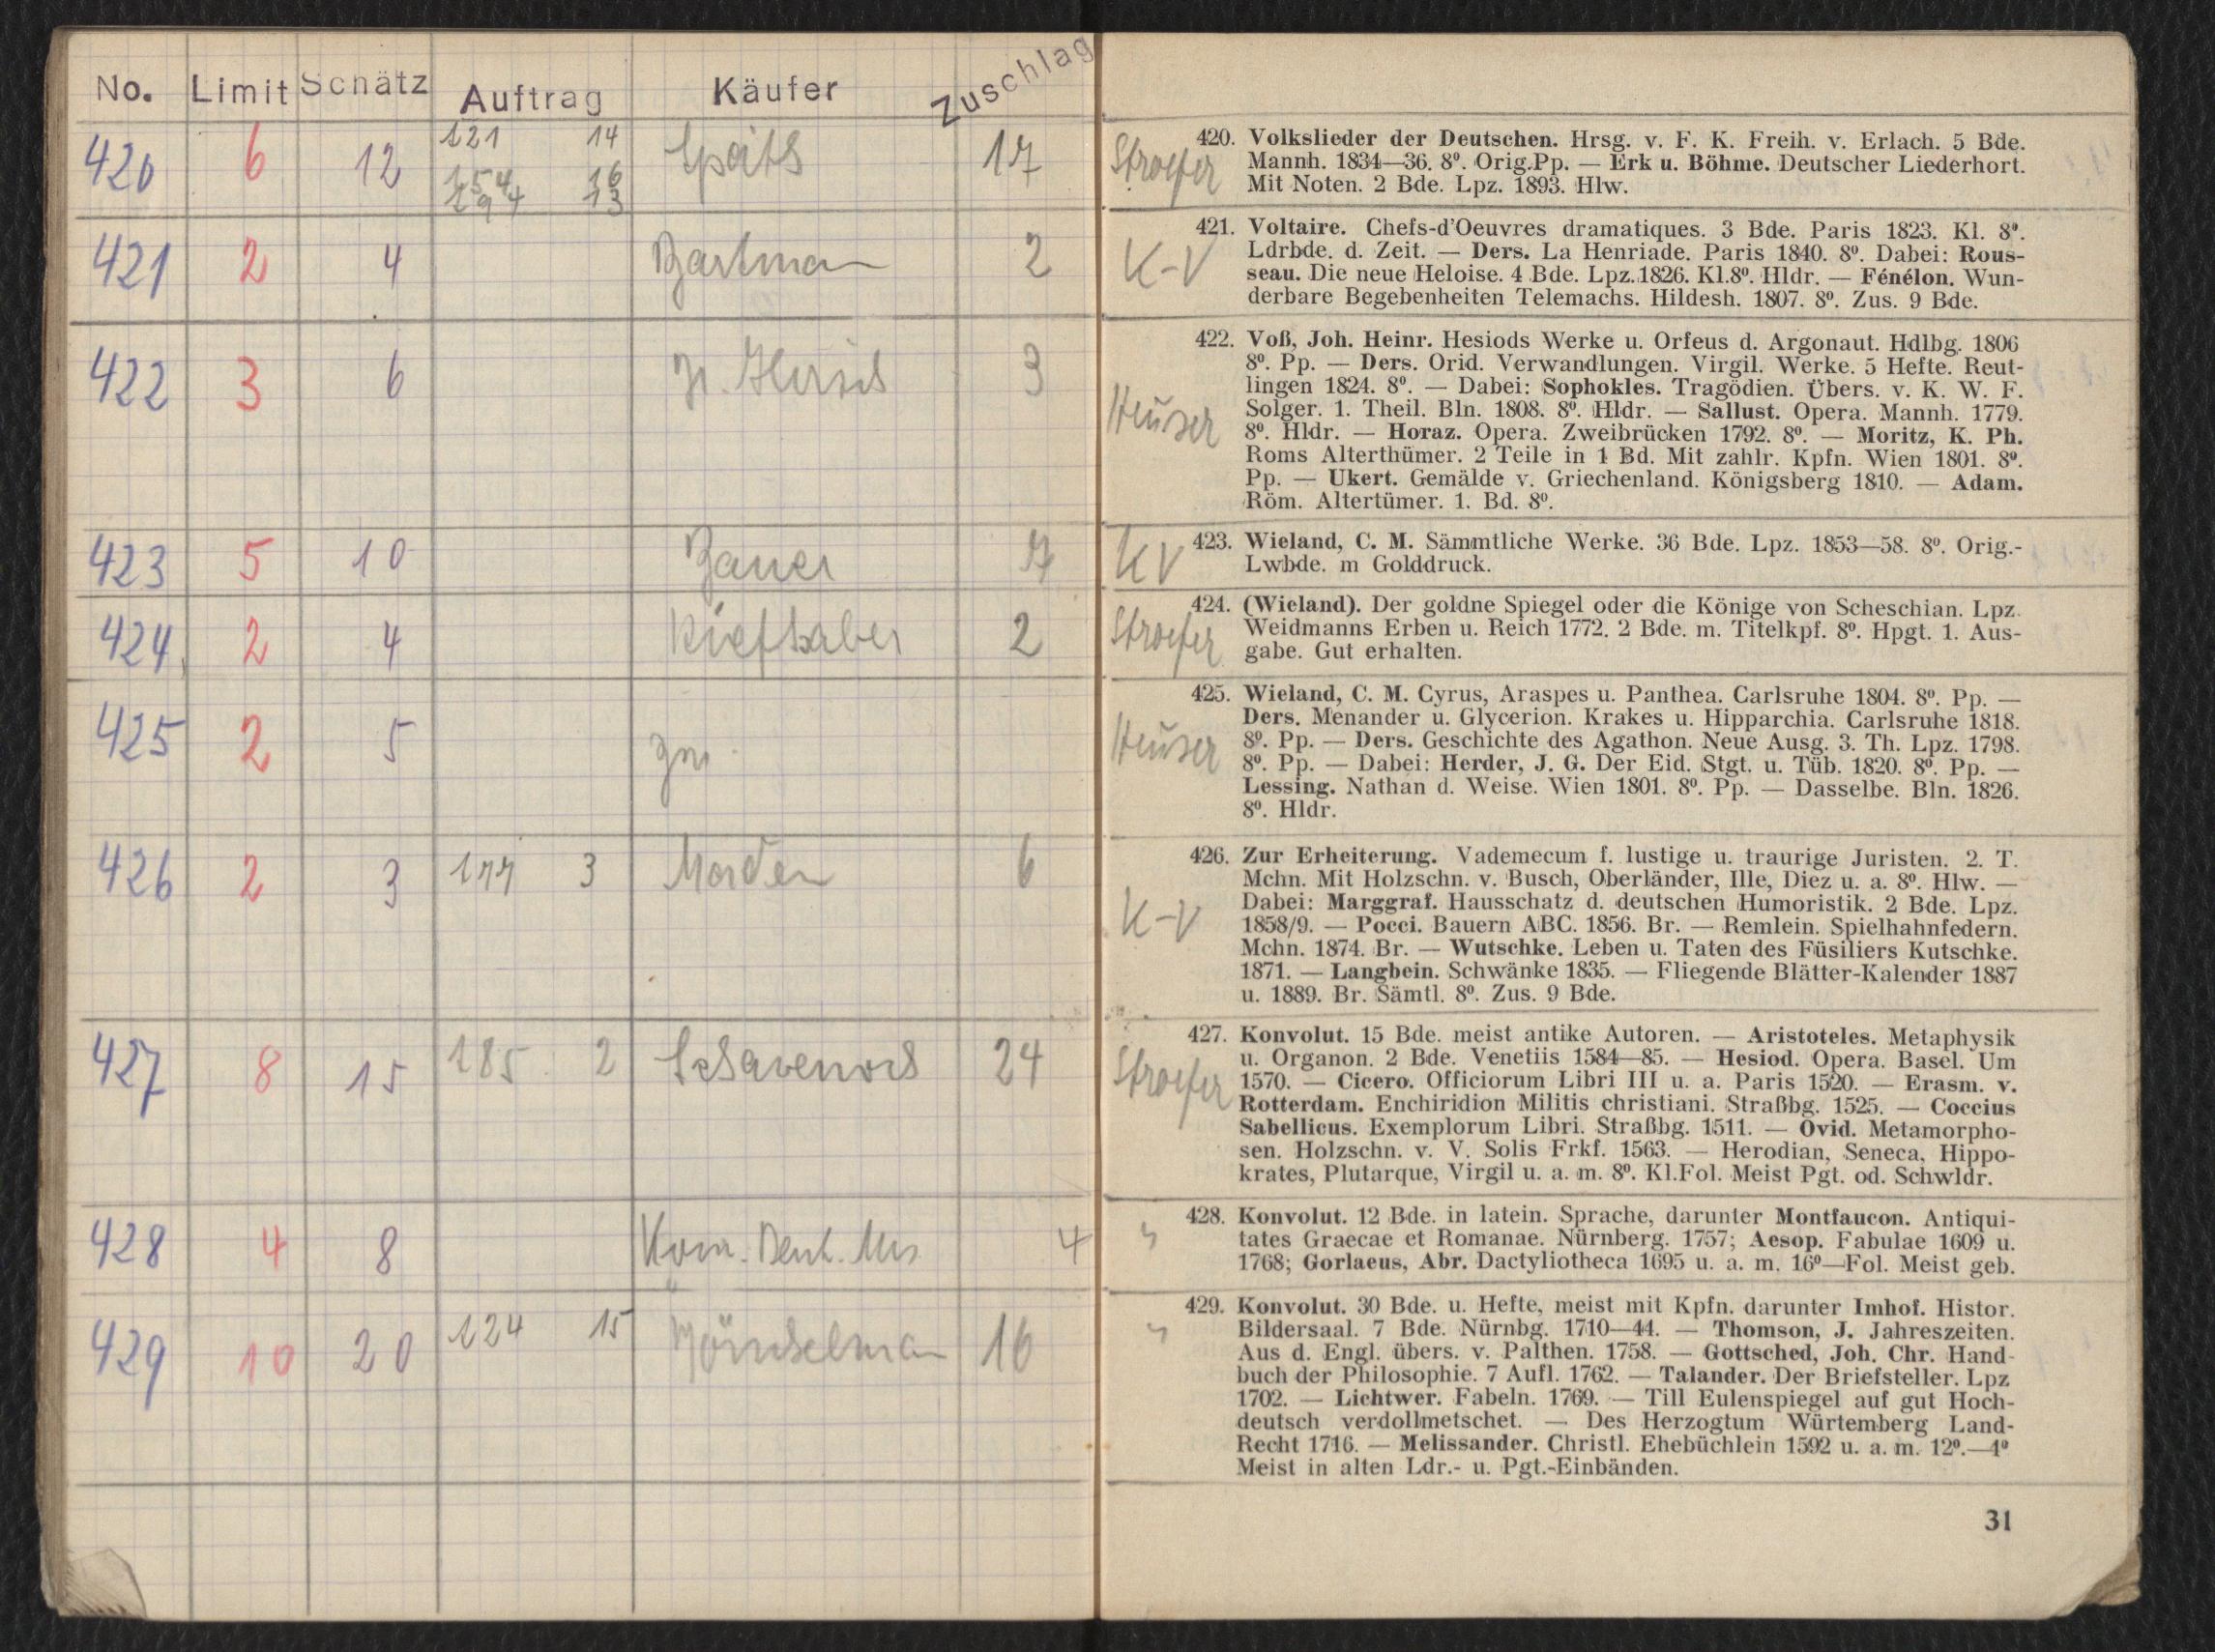 No. Limit Schätz Auftrag Käufer Zuschlag
420 6 12 121 14 Späth 17
154 16
194 13
421 2 4 Bartman 2
422 3 6 H. Hirsch 3
423 5 10 Bauer 7
424 2 4 Kiefhaber 2
425 2 5
426 2 3 177 3 Morden 6
427 8 15 185 2 24
428 4 8 4
429 10 20 124 15 16
Stroefer
420. Volkslieder der Deutschen. Hrsg. v. F. K. Freih. v. Erlach. 5 Bde.
Mannh. 1834—36. 8⁰. Orig.Pp. — Erk u. Böhme. Deutscher Liederhort.
Mit Noten. 2 Bde. Lpz. 1893. Hlw.
K-V
421. Voltaire. Chefs-d'Oeuvres dramatiques. 3 Bde. Paris 1823. Kl. 8⁰.
Ldrbde. d. Zeit. — Ders. La Henriade. Paris 1840. 8⁰. Dabei: Rous-
seau. Die neue Heloise. 4 Bde. Lpz.1826. Kl.8⁰. Hldr. — Fénélon. Wun-
derbare Begebenheiten Telemachs. Hildesh. 1807. 8⁰. Zus. 9 Bde.
Heuser
422. Voß, Joh. Heinr. Hesiods Werke u. Orfeus d. Argonaut. Hdlbg. 1806
8⁰. Pp. — Ders. Orid. Verwandlungen. Virgil. Werke. 5 Hefte. Reut-
lingen 1824. 8⁰. — Dabei: Sophokles. Tragödien. Übers. v. K. W. F.
Solger. 1. Theil. Bln. 1808. 8⁰. Hldr. — Sallust. Opera. Mannh. 1779.
8⁰. Hldr. — Horaz. Opera. Zweibrücken 1792. 8⁰. — Moritz, K. Ph.
Roms Alterthümer. 2 Teile in 1 Bd. Mit zahlr. Kpfn. Wien 1801. 8⁰.
Pp. — Ukert. Gemälde v. Griechenland. Königsberg 1810. — Adam.
Röm. Altertümer. 1. Bd. 8⁰.
KV
423. Wieland, C. M. Sämmtliche Werke. 36 Bde. Lpz. 1853—58. 8⁰. Orig.-
Lwbde. m Golddruck.
Stroefer
424. (Wieland). Der goldne Spiegel oder die Könige von Scheschian. Lpz.
Weidmanns Erben u. Reich 1772. 2 Bde. m. Titelkpf. 8⁰. Hpgt. 1. Aus-
gabe. Gut erhalten.
Heuser
425. Wieland, C. M. Cyrus, Araspes u. Panthea. Carlsruhe 1804. 8⁰. Pp. —
Ders. Menander u. Glycerion. Krakes u. Hipparchia. Carlsruhe 1818.
8⁰. Pp. — Ders. Geschichte des Agathon. Neue Ausg. 3. Th. Lpz. 1798.
8⁰. Pp. — Dabei: Herder, J. G. Der Eid. Stgt. u. Tüb. 1820. 8⁰. Pp. —
Lessing. Nathan d. Weise. Wien 1801. 8⁰. Pp. — Dasselbe. Bln. 1826.
8⁰. Hldr.
K-V
426. Zur Erheiterung. Vademecum f. lustige u. traurige Juristen. 2. T.
Mchn. Mit Holzschn. v. Busch, Oberländer, Ille, Diez u. a. 8⁰. Hlw. —
Dabei: Marggraf. Hausschatz d. deutschen Humoristik. 2 Bde. Lpz.
1858/9. — Pocci. Bauern ABC. 1856. Br. — Remlein. Spielhahnfedern.
Mchn. 1874. Br. — Wutschke. Leben u. Taten des Füsiliers Kutschke.
1871. — Langbein. Schwänke 1835. — Fliegende Blätter-Kalender 1887
u. 1889. Br. Sämtl. 8⁰. Zus. 9 Bde.
Stroefer
427. Konvolut. 15 Bde. meist antike Autoren. — Aristoteles. Metaphysik
u. Organon. 2 Bde. Venetiis 1584—85. — Hesiod. Opera. Basel. Um
1570. — Cicero. Officiorum Libri III u. a. Paris 1520. — Erasm. v.
Rotterdam. Enchiridion Militis christiani. Straßbg. 1525. — Coccius
Sabellicus. Exemplorum Libri. Straßbg. 1511. — Ovid. Metamorpho-
sen. Holzschn. v. V. Solis Frkf. 1563. — Herodian, Seneca, Hippo-
krates, Plutarque, Virgil u. a. m. 8⁰. Kl.Fol. Meist Pgt. od. Schwldr.
428. Konvolut. 12 Bde. in latein. Sprache, darunter Montfaucon. Antiqui-
tates Graecae et Romanae. Nürnberg. 1757; Aesop. Fabulae 1609 u.
1768; Gorlaeus, Abr. Dactyliotheca 1695 u. a. m. 16⁰—Fol. Meist geb.
429. Konvolut. 30 Bde. u. Hefte, meist mit Kpfn. darunter Imhof. Histor.
Bildersaal. 7 Bde. Nürnbg. 1710—44. — Thomson, J. Jahreszeiten.
Aus d. Engl. übers. v. Palthen. 1758. — Gottsched, Joh. Chr. Hand-
buch der Philosophie. 7 Aufl. 1762. — Talander. Der Briefsteller. Lpz
1702. — Lichtwer. Fabeln. 1769. — Till Eulenspiegel auf gut Hoch-
deutsch verdollmetschet. — Des Herzogtum Würtemberg Land-
Recht 1716. — Melissander. Christl. Ehebüchlein 1592 u. a. m. 12⁰.—4⁰
Meist in alten Ldr.- u. Pgt.-Einbänden.
31